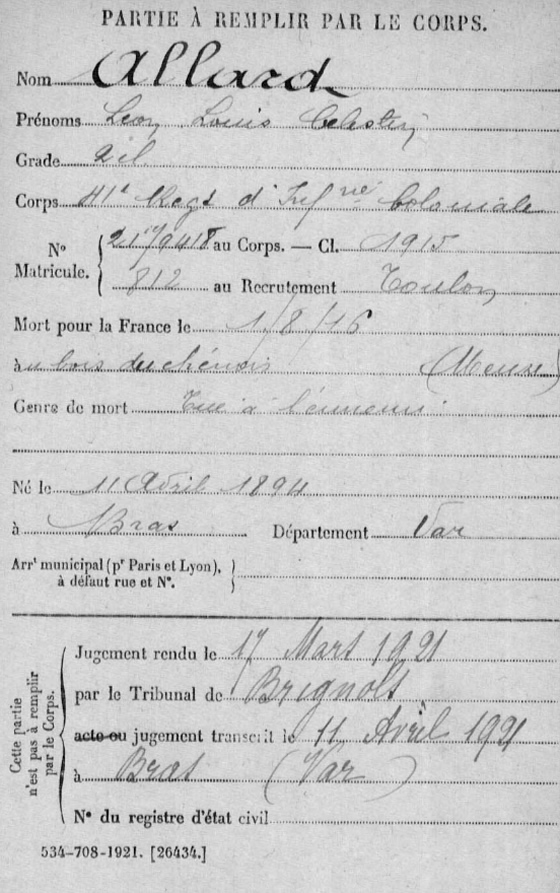 PARTIE À REMPLIR PAR LE CORPS.
Nom Allard
Prénoms Léon Louis Célestin
Grade 2 cl
Corps 41e Regt d'Inf rie Coloniale
No Matricule. { 21179418 au Corps. — Cl. 1915
812 au Recrutement Toulon
Mort pour la France le 1/8/16
au bois du chénois (Meuse)
Genre de mort Tué à l'ennemi
Né le 11 Avril 1894
à Bras Département Var
Arrt municipal (pr Paris et Lyon), à défaut rue et No. }
Cette partie n'est pas à remplir par le Corps.
Jugement rendu le 17 Mars 1921
par le Tribunal de Brignoles
acte ou jugement transcrit le 11 Avril 1921
à Bras (Var)
No du registre d'état civil
534-708-1921. [26434.]